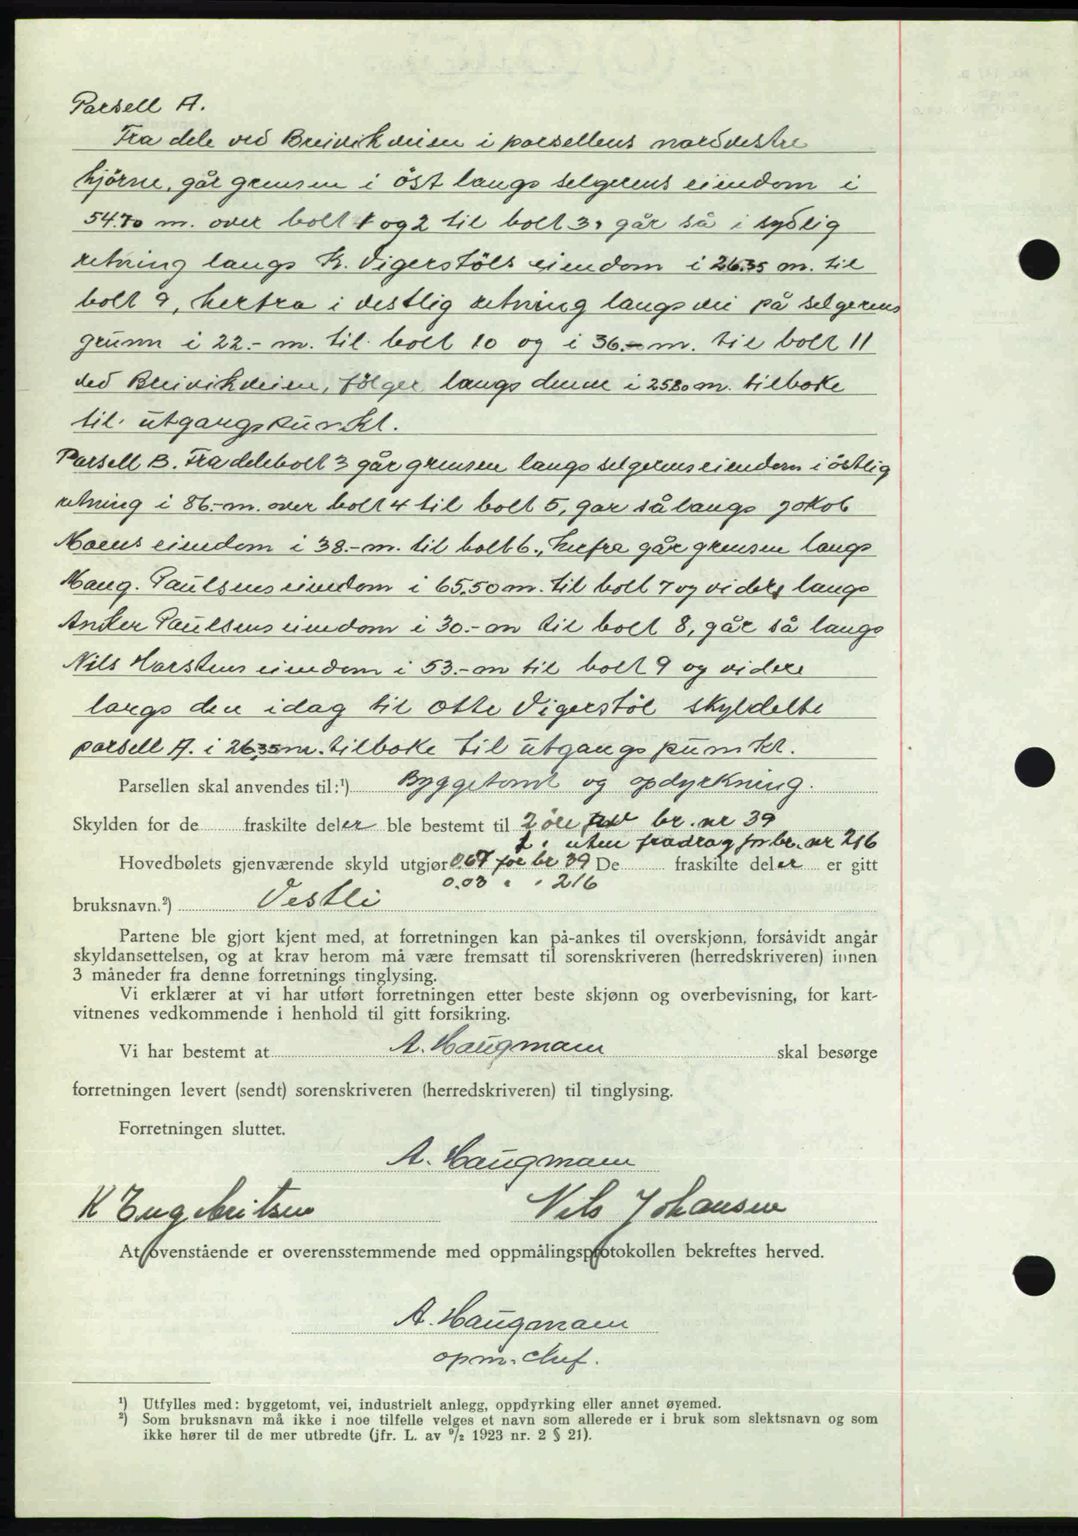 Parsell A.
Fra dele ved Breivikveien i parsellens nordvestre
hjörne, går grensen i öst langs selgerens eiendom i
54.70 m. over bolt 1 og 2 til bolt 3, går så i sydlig
retning langs K. Vigerstöls eiendom i 26.35 m. til
bolt 9, herfra i vestlig retning langs vei på selgerens
grunn i 22.- m. til bolt 10 og i 36.- m. til bolt 11
ved Breivikveien, fölger langs denne i 25.80 m. tilbake
til utgangspunkt.
Parsell B. Fra delebolt 3 går grensen langs selgerens eiendom i östlig
retning i 86.- m. over bolt 4 til bolt 5, går så langs Jakob
Moens eiendom i 38.- m. til bolt 6., herfra går grensen langs
Maug. Paulsens eiendom i 65.50 m. til bolt 7 og videre langs
Anker Paulsens eiendom i 30.- m til bolt 8, går så langs
Nils Karstens eiendom i 53.- m til bolt 9 og videre
langs den idag til Otte Vigerstöl skyldelte
parsell A. i 26,35 m. tilbake til utgangspunkt.
Parsellen skal anvendes til:¹) Byggetomt og opdyrkning.
Skylden for de fraskilte deler ble bestemt til 2 öre for br. nr 39
uten fradrag for br. nr 216
Hovedbølets gjenværende skyld utgjør 0.67 for br 39 De fraskilte deler er gitt
0.03 " " 216
bruksnavn.²) Vestli
Partene ble gjort kjent med, at forretningen kan på-ankes til overskjønn, forsåvidt angår
skyldansettelsen, og at krav herom må være fremsatt til sorenskriveren (herredskriveren) innen
3 måneder fra denne forretnings tinglysing.
Vi erklærer at vi har utført forretningen etter beste skjønn og overbevisning, for kart-
vitnenes vedkommende i henhold til gitt forsikring.
Vi har bestemt at A. Haugmann skal besørge
forretningen levert (sendt) sorenskriveren (herredskriveren) til tinglysing.
Forretningen sluttet.
A. Haugmann
K Engebritsen Nils Johansen
At ovenstående er overensstemmende med oppmålingsprotokollen bekreftes herved.
A. Haugmann
opm. chef.
¹) Utfylles med: byggetomt, vei, industrielt anlegg, oppdyrking eller annet øyemed.
²) Som bruksnavn må ikke i noe tilfelle velges et navn som allerede er i bruk som slektsnavn og som
ikke hører til de mer utbredte (jfr. L. av ⁹/₂ 1923 nr. 2 § 21).